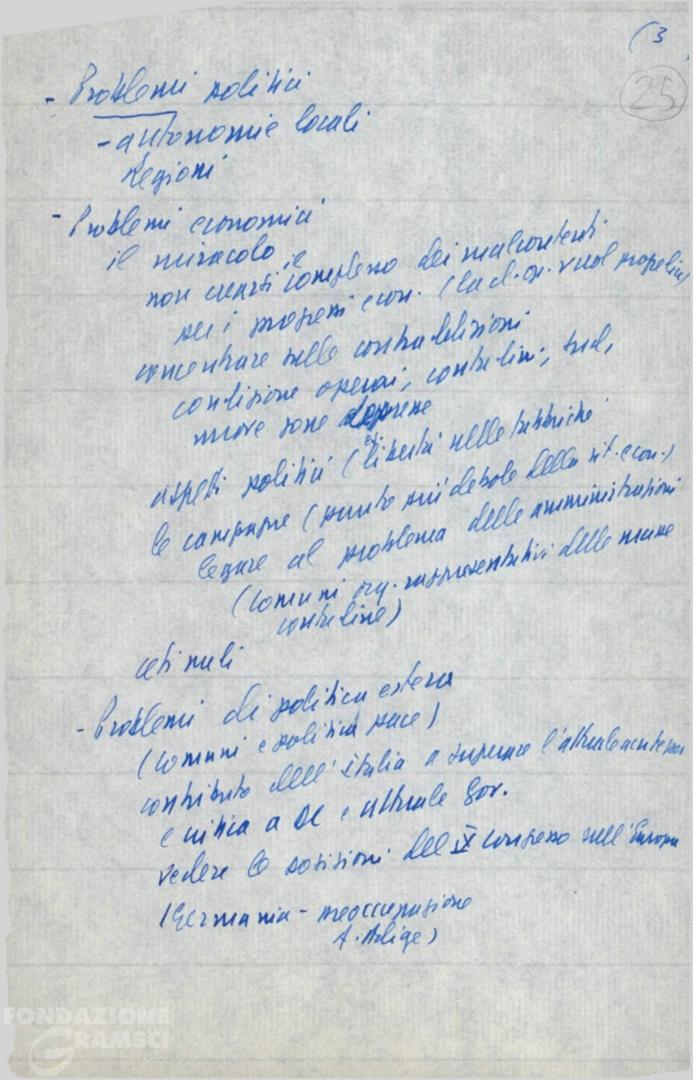 (3
25
- Problemi politici
- autonomie locali
Regioni
- Problemi economici
il miracolo
non crearsi il complesso dei malcontenti
per i progressi econ. (la d.
concentrare sulle contraddizioni
condizione operai, contadini, sud,
nuove zone depresse
aspetti politici (libertà nelle fabbriche
le campagne (punto più debole della sit. econ.)
legare al problema delle amministrazioni
(comuni org. rappresentativi delle masse
contadine)
ceti medi
- Problemi di politica estera
(comuni e politica pace)
contributo dell'Italia a superare l'attuale
e critica a DC e attuale gov.
vedere le posizioni del IX congresso sull'Europa
(Germania - preoccupazione
A. Adige)
FONDAZIONE
GRAMSCI